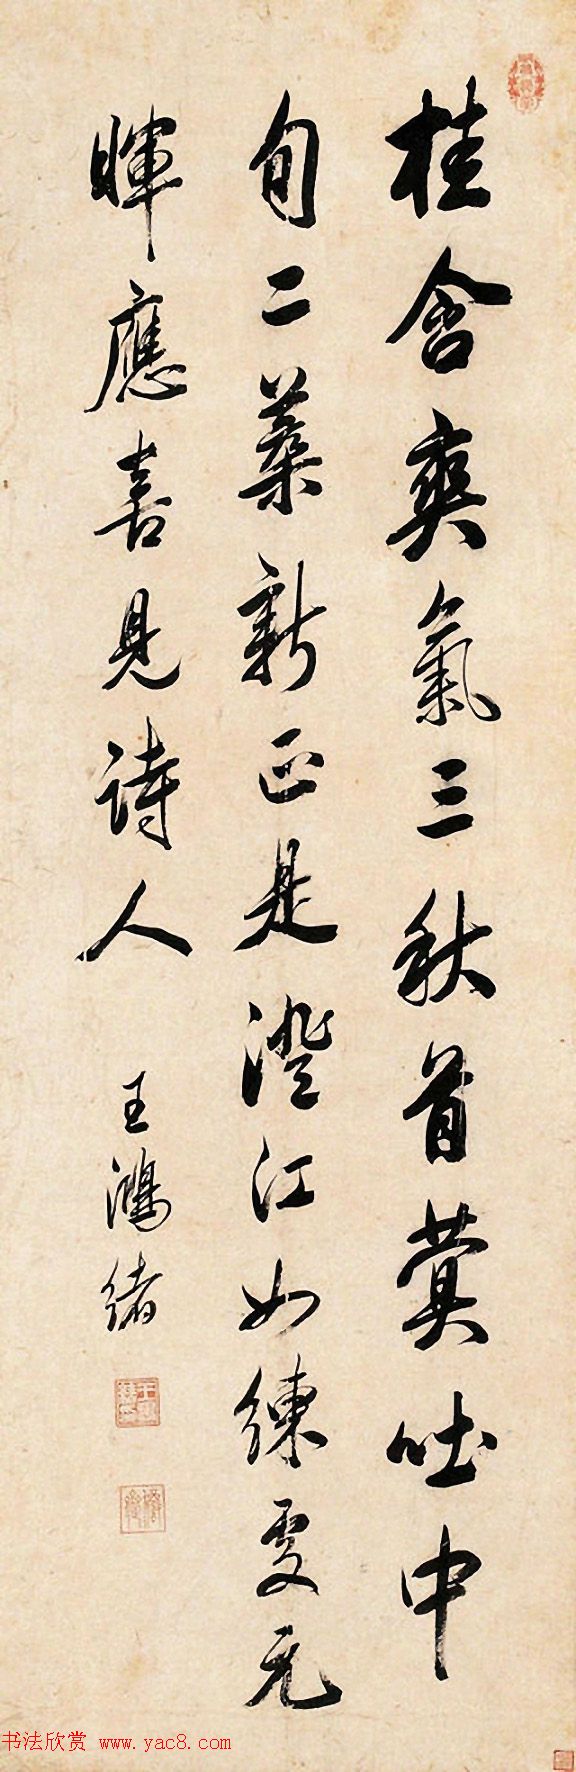 桂含爽氣三秋首蓂吐中
旬二葉新正是澄江如練處元
暉應喜見詩人
王鴻緒
书法欣赏 www.yac8.com